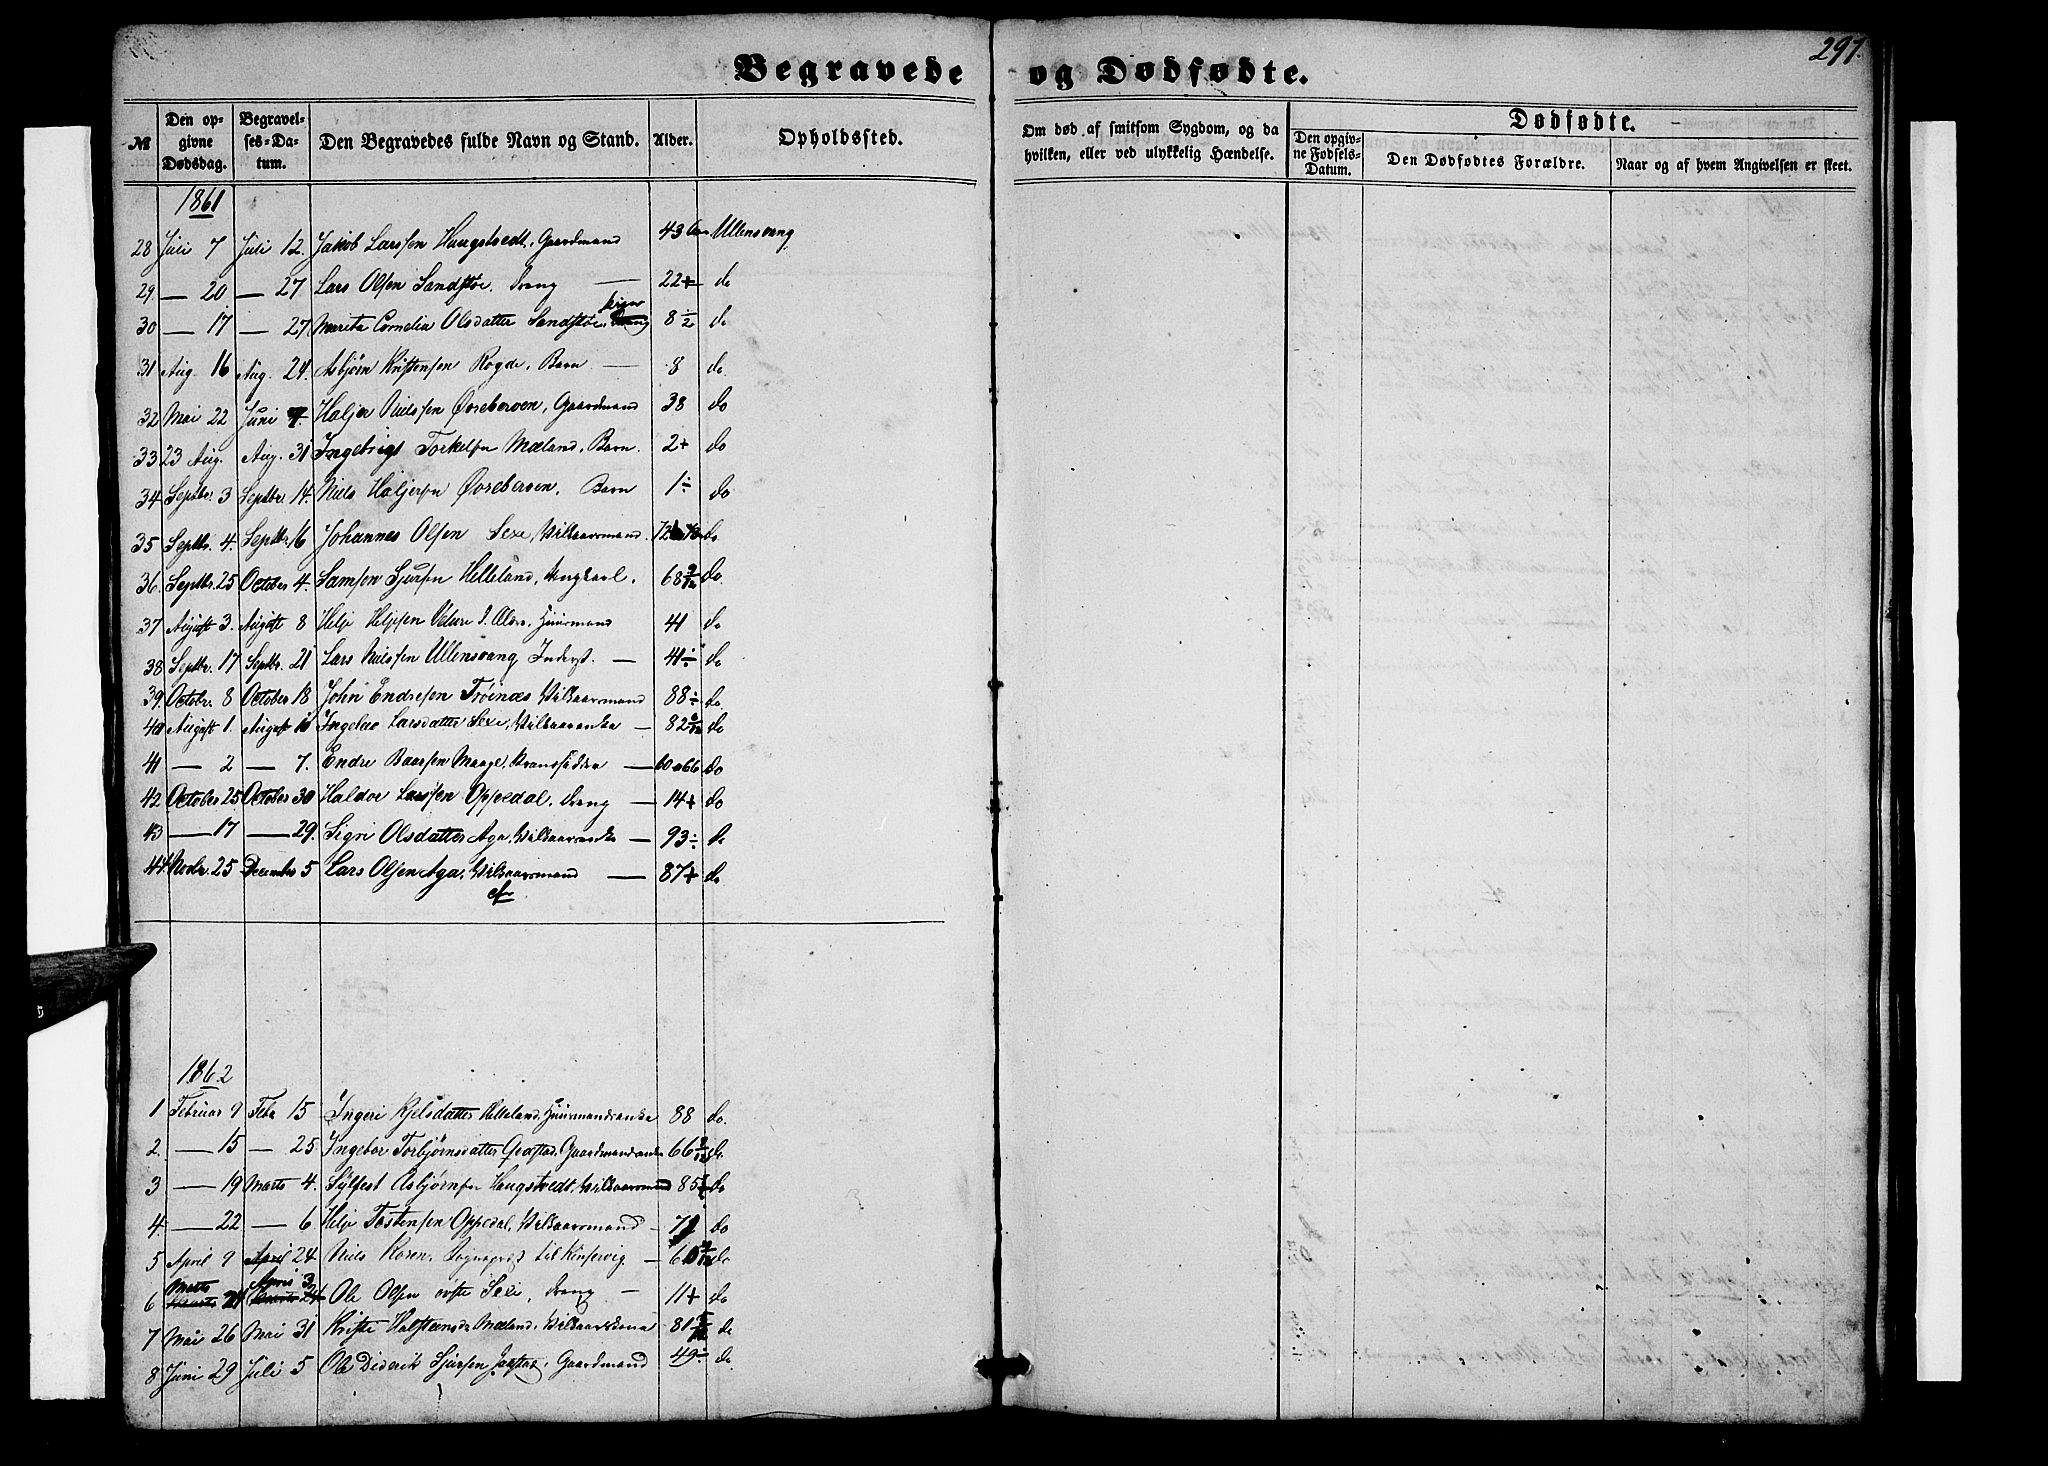 297.
Begravede og Dødfødte.
№ Den opgivne Dødsdag. Begravelses-Datum. Den Begravedes fulde Navn og Stand. Alder. Opholdssted. Om død af smitsom Sygdom, og da hvilken, eller ved ulykkelig Hændelse. Dødfødte. Den opgivne Fødsels-Datum. Den Dødfødtes Forældre. Naar og af hvem Angivelsen er skeet.
1861
28 Juli 7 Juli 12. Jakob Larssen Haugstvedt, Gaardmand 43 Ullensvang
29. — 20 — 27 Lars Olsen Sandstøe. Dreng — 22+ do
30 — 17 — 27 Marita Cornelia Olsdatter Sandstøe, Pige 8 ½ do
31 Aug. 16 Aug. 24. Asbjørn Kristensen Rogde, Barn — 8 do
32 Mai 22 Juni 7. Haljer Nielssen Øvrebersen, Gaardmand 38 do
33 23 Aug. Aug. 31 Ingebrigt Torkelsen Mæland, Barn. 2+ do
34 Septbr. 3 Septbr. 14. Niels Haljersen Øvrebersen, Barn 1÷ do
35 Septbr. 4. Septbr. 16 Johannes Olsen Sexe, Vilkaarsmand. 72 do
36. Septbr. 25 October 4. Samson Sjursen Helleland, Ungkarl. 68 9/12 do.
37 August 3. August 8 Helje Heljesen Huusmand 41 do
38 Septbr. 17 Septbr. 21 Lars Nielssen Ullensvang Inderst. — 41÷ do
39. Octobr. 8 October 18 John Endresen Trøinæs, Vilkaarsmand 88÷ do.
40 August 1. August 10 Larsdatter Sexe, Vilkaarsenke — 82 do
41 — 2 — 7. Endre Baarsen Maage, — 60 a 66 do
42 October 25 October 30 Haldor Larssen Oppedal, Dreng — 14+ do
43 — 17 — 29. Sigri Olsdatter Aga, Vilkaarsenke — 93÷ do
44. Novbr. 25 December 5 Lars Olsen Aga, Vilkaarsmand — 87+ do
1862
1 Februar 9 Feba 15 Ingeri Kjelsdatter Helleland, Huusmandsenke 88 do.
2 — 15 — 25 Ingebor Torbjørnsdatter Gaardmandsenke 66 do.
3 — 19 Marts 4. Sylfest Asbjørnsen Haugstvedt, Vilkaarsmand 85 do
4. — 22 — 6 Helje Tostensen Oppedal, Vilkaarsmand — 71 do
5 April 9 April 24 Niels Koren, Sogneprest til Kinservig — do
6 Marts April 3 Ole Olsen øvste Sexe, Dreng — 11+ do
7 Mai 26 Mai 31 Kristi Halstensdr. Mæland, Vilkaarskona 81 do
8 Juni 29 Juli 5 Ole Diderik Sjursen Jaastad, Gaardmand 49÷ do